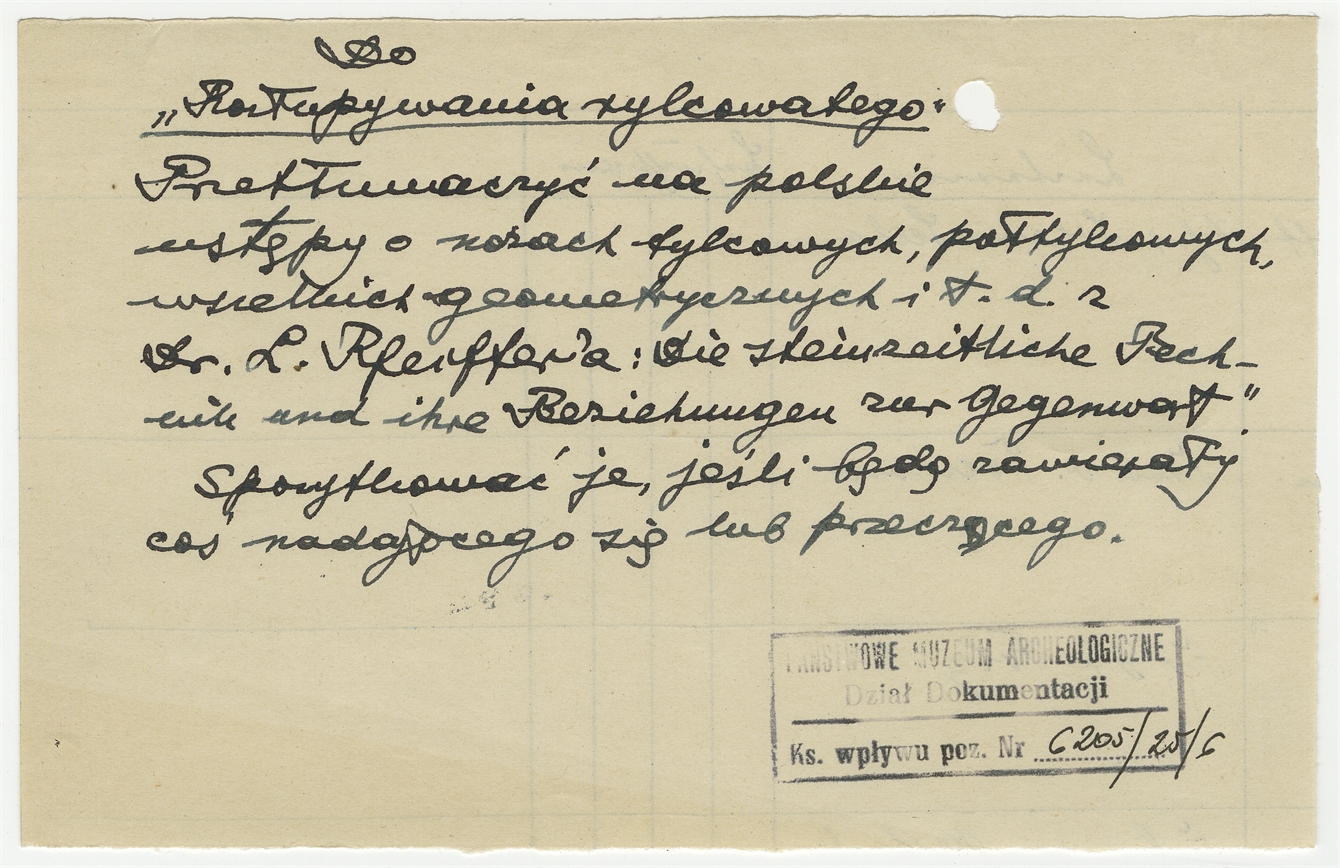 Do
„Rozłupywania rylcowatego"
Przetłumaczyć na polskie
ustępy o nożach tylcowych, półtylcowych,
wszelkich geometrycznych i t. d. z
Dr. L. Pfeiffer'a: Die steinzeitliche Tech-
nik und ihre Beziehungen zur Gegenwart."
Spożytkować je, jeśli będą zawierały
coś nadającego się lub przeczącego.
PAŃSTWOWE MUZEUM ARCHEOLOGICZNE
Dział Dokumentacji
Ks. wpływu poz. Nr 6205/25/6